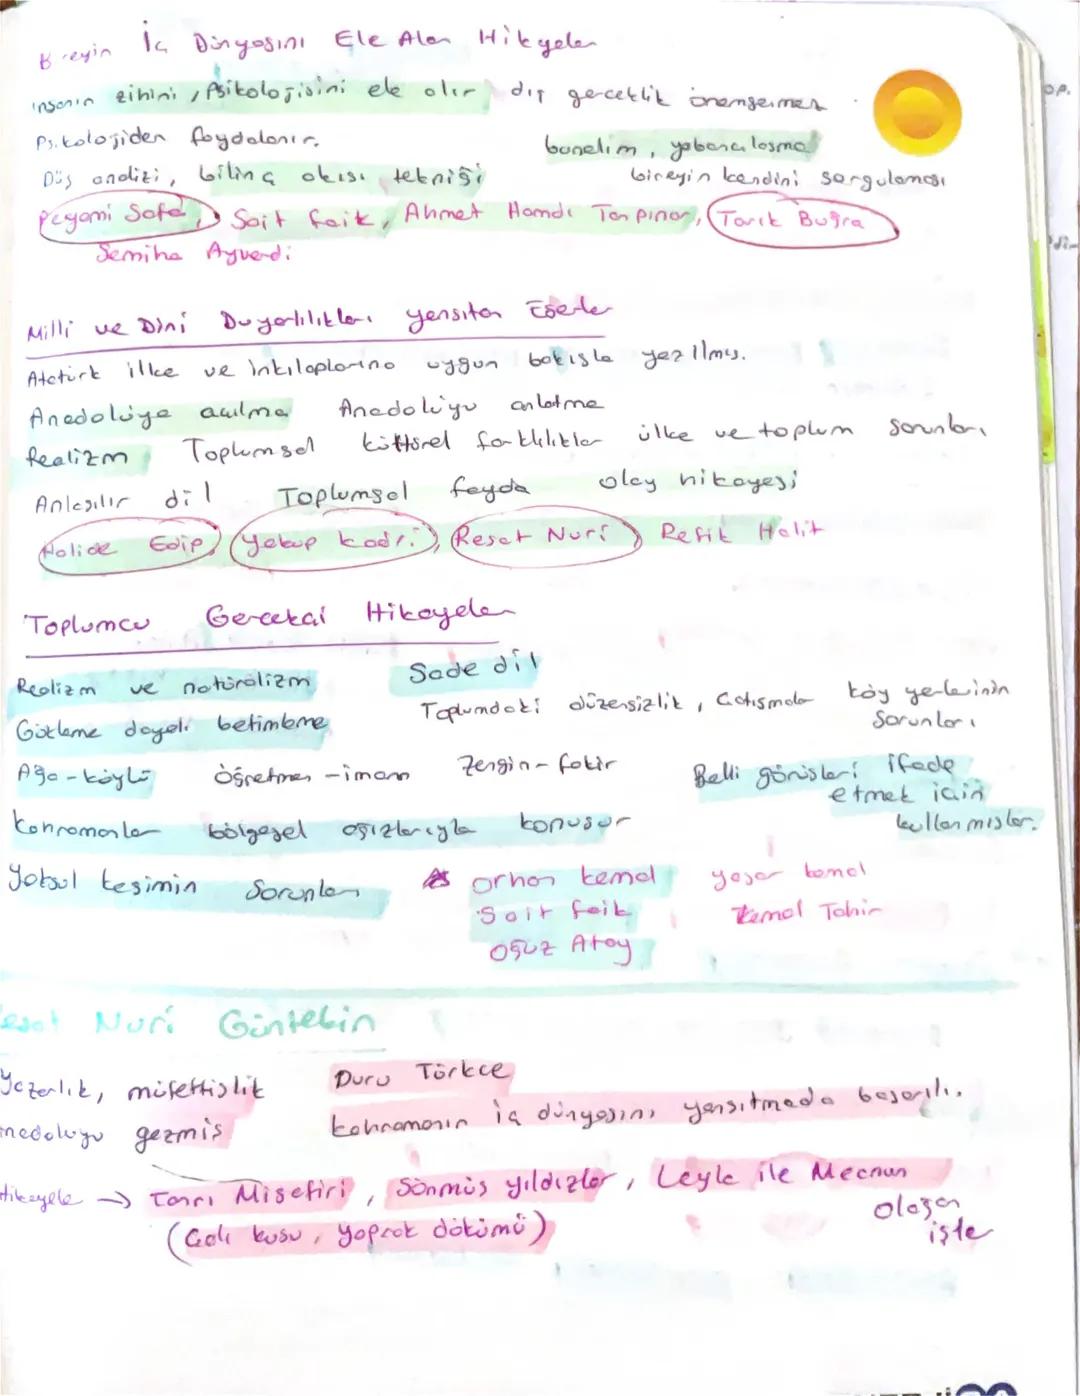 Bireyin İç Dünyasını Ele Alan Hikyeler
insanın zihini, Psikolojisini ele alır dış gerçeklik önemsenmez.
Psikolojiden faydalanır. bunalım, yabancılaşma
Düş analizi, bilinç akışı tekniği bireyin kendini sorgulaması
Peyami Safa, Sait faik, Ahmet Hamdi Tanpınar, Tarık Buğra
Semiha Ayverdi
Milli ve Dini Duyarlılıkları yansıtan Eserler
Atatürk ilke ve inkılaplarına uygun bakışla yazılmış.
Anadoluya açılma Anadoluyu anlatma
Realizm Toplumsal kültürel farklılıklar ülke ve toplum sorunları
Anlaşılır dil Toplumsal fayda olay hikayesi
Halide Edip, Yakup kadri, Reşat Nuri Refik Halit
Toplumcu Gerçekçi Hikayeler
Realizm ve natüralizm Sade dil
Gözleme dayalı betimleme Toplumdaki düzensizlik, çatışmalar köy yerlerinin sorunları
Ağa-köylü Öğretmen-imam Zengin-fakir Belli görüşleri ifade
etmek için
kullanmışlar.
kahramanlar bölgesel ağızlarıyla konuşur
Yoksul kesimin Sorunları orhan kemal yaşar kemal
Sait faik Kemal Tahir
Oğuz Atay
eşat Nuri Güntekin
Yazarlık, müfettişlik Duru Türkçe
nadoluyu gezmiş kahramanın iç dünyasını yansıtmada başarılı.
Hikayele → Tanrı Misafiri, Sönmüş yıldızlar, Leyla ile Mecnun
(Çalı kuşu, yaprak dökümü) olağan
işte